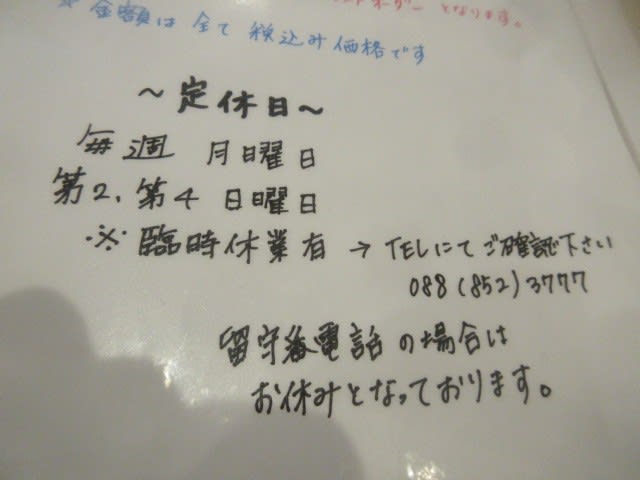 オーダー となります。
※ 金額は 全て 税込み価格です
～定休日～
毎週 月曜日
第2、第4 日曜日
※臨時休業有 → TELにて ご確認下さい
088(852)3777
留守番電話の場合は
お休みとなっております。